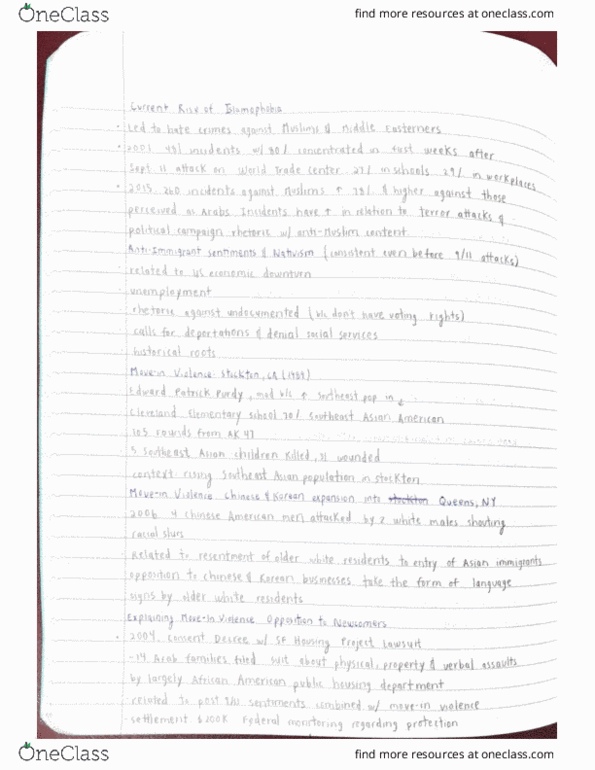 OneClass
find more resources at oneclass.com
Current Rise of Islamophobia
• Led to hate crimes against Muslims & Middle Easterners
• 2001 481 incidents w/ 80% concentrated in first weeks after
Sept 11 attack on World Trade center. 27% in schools 29% in workplaces
• 2015, 260 incidents against Muslims ↑ 78% & higher against those
perceived as Arabs. Incidents have ↑ in relation to terror attacks &
political campaign rhetoric w/ anti-Muslim content.
Anti-Immigrant sentiments & Nativism (consistent even before 9/11 attacks)
related to US economic downturn
unemployment
rhetoric against undocumented (b/c don't have voting rights)
calls for deportations & denial social services
historical roots
Move-in Violence: Stockton, CA (1989)
Edward Patrick Purdy, mad b/c ↑ southeast pop in
Cleveland Elementary school 70% Southeast Asian American
105 rounds from AK 47
5 Southeast Asian children killed, 31 wounded
context: rising Southeast Asian population in stockton
Move-in Violence Chinese & Korean expansion into stockton Queens, NY
2006 4 Chinese American men attacked by 2 white males shouting
racial slurs
Related to resentment of older white residents to entry of Asian immigrants
opposition to Chinese & Korean businesses take the form of language
signs by older white residents
Explaining Move-In Violence Opposition to Newcomers
• 2004, Consent Decree w/ SF Housing Project Lawsuit
-14 Arab families filed suit about physical, property & verbal assaults
by largely African American public housing department
related to post 9/11 sentiments combined w/ move-in violence
settlement $200K Federal monitoring regarding protection
OneClass
find more resources at oneclass.com